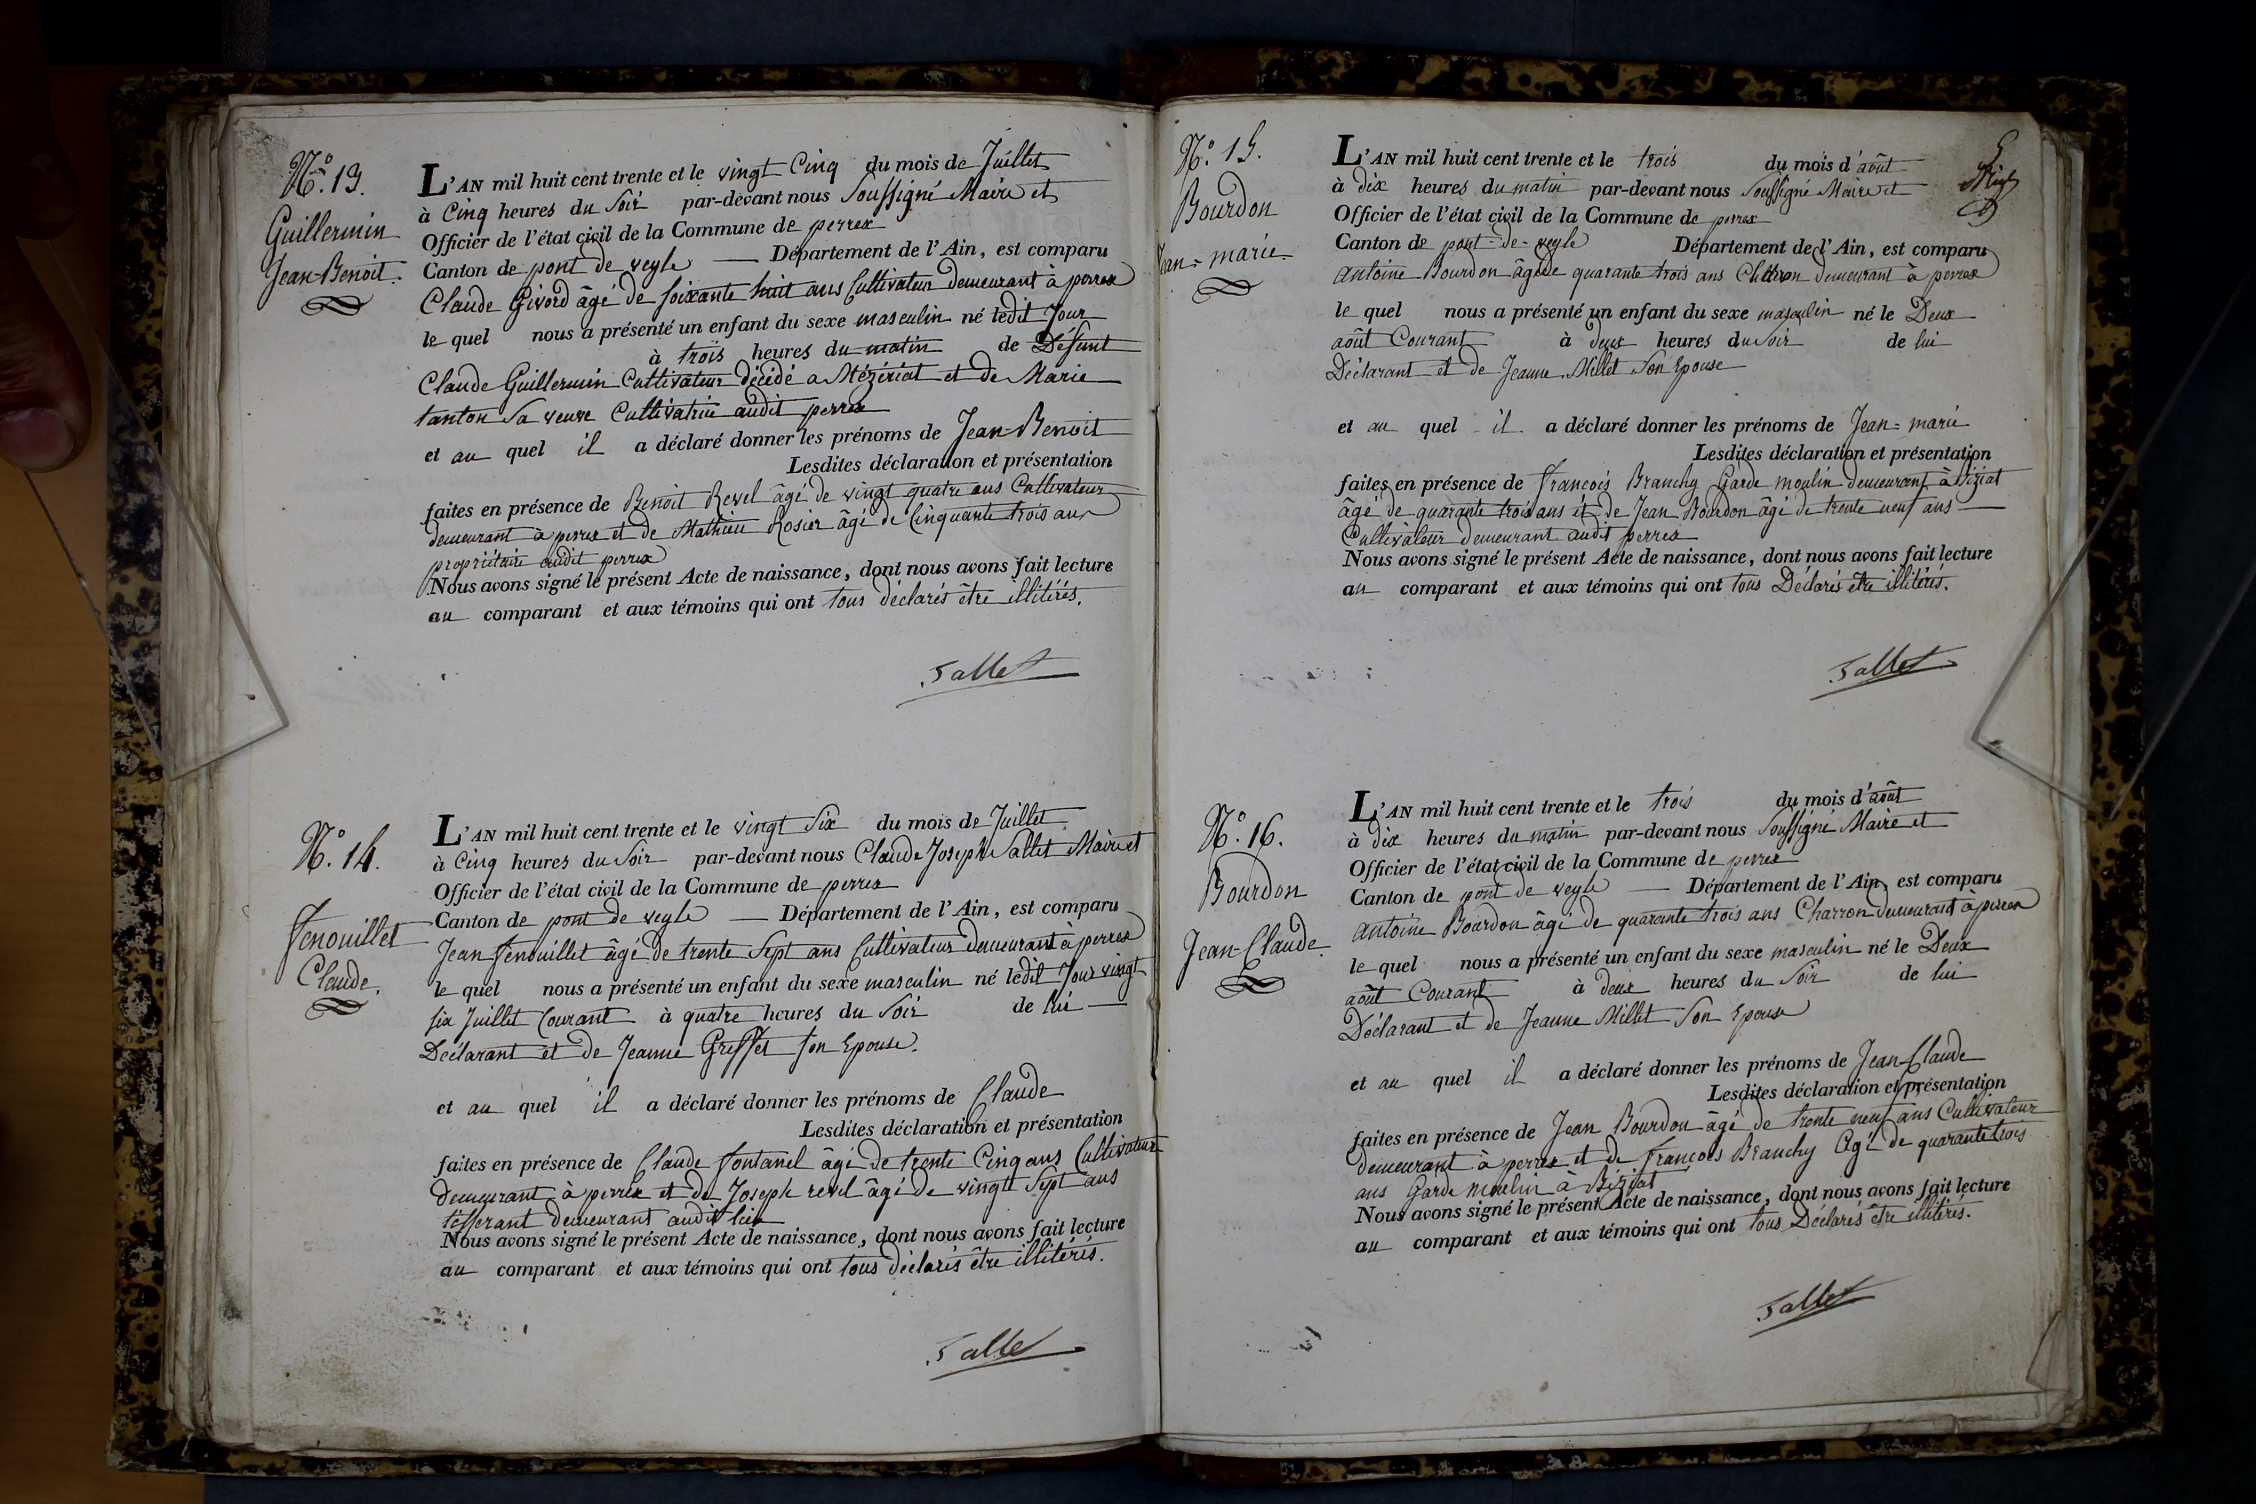 N.º 13.
Guillermin
Jean-Benoit.
L'AN mil huit cent trente et le vingt Cinq du mois de Juillet
à Cinq heures du Soir par-devant nous Soussigné Maire et
Officier de l'état civil de la Commune de perrex
Canton de pont de veyle — Département de l'Ain, est comparu
Claude Givord âgé de soixante huit ans Cultivateur demeurant à perrex
le quel nous a présenté un enfant du sexe masculin né ledit Jour
à trois heures du matin de Défunt
Claude Guillermin Cultivateur décédé a Mézériat et de Marie
tanton Sa veuve Cultivatrice audit perrex
et au quel il a déclaré donner les prénoms de Jean-Benoit
Lesdites déclaration et présentation
faites en présence de Benoit Revel âgé de vingt quatre ans Cultivateur
demeurant à perrex et de Mathieu Rosier âgé de Cinquante trois ans
propriétaire audit perrex
Nous avons signé le présent Acte de naissance, dont nous avons fait lecture
au comparant et aux témoins qui ont tous déclarés être illitérés.
Sallet
N.º 14.
Fenouillet
Claude.
L'AN mil huit cent trente et le vingt Six du mois de Juillet
à Cinq heures du Soir par-devant nous Claude Joseph Sallet Maire et
Officier de l'état civil de la Commune de perrex
Canton de pont de veyle — Département de l'Ain, est comparu
Jean fenouillet âgé de trente Sept ans Cultivateur demeurant à perrex
le quel nous a présenté un enfant du sexe masculin né ledit Jour vingt
six Juillet Courant à quatre heures du Soir de lui —
Déclarant et de Jeanne Greffet son Epouse.
et au quel il a déclaré donner les prénoms de Claude
Lesdites déclaration et présentation
faites en présence de Claude fontanel âgé de trente Cinq ans Cultivateur
demeurant à perrex et de Joseph revel âgé de vingt Sept ans
tisserant demeurant audit lieu
Nous avons signé le présent Acte de naissance, dont nous avons fait lecture
au comparant et aux témoins qui ont tous déclarés être illitérés.
Sallet
5
N.º 15.
Bourdon
Jean-marie
L'AN mil huit cent trente et le trois du mois d'août
à dix heures du matin par-devant nous Soussigné Maire et
Officier de l'état civil de la Commune de perrex
Canton de pont-de-veyle Département de l'Ain, est comparu
antoine Bourdon âgé de quarante trois ans Charron demeurant à perrex
le quel nous a présenté un enfant du sexe masculin né le Deux
août Courant à deux heures du Soir de lui
Déclarant et de Jeanne Millet Son Epouse
et au quel il a déclaré donner les prénoms de Jean-marie
Lesdites déclaration et présentation
faites en présence de francois Branchy Garde moulin demeurant à Biziat
âgé de quarante trois ans et de Jean Bourdon âgé de trente neuf ans —
Cultivateur demeurant audit perrex
Nous avons signé le présent Acte de naissance, dont nous avons fait lecture
au comparant et aux témoins qui ont tous Déclarés être illitérés.
Sallet
N.º 16.
Bourdon
Jean-Claude.
L'AN mil huit cent trente et le trois du mois d'août
à dix heures du matin par-devant nous Soussigné Maire et
Officier de l'état civil de la Commune de perrex
Canton de pont de veyle — Département de l'Ain, est comparu
antoine Bourdon âgé de quarante trois ans Charron demeurant à perrex
le quel nous a présenté un enfant du sexe masculin né le Deux
août Courant à deux heures du Soir de lui
Déclarant et de Jeanne Millet Son Epouse
et au quel il a déclaré donner les prénoms de Jean-Claude
Lesdites déclaration et présentation
faites en présence de Jean Bourdon âgé de trente neuf ans Cultivateur
demeurant à perrex et de francois Branchy Agé de quarante trois
ans Garde moulin à Biziat
Nous avons signé le présent Acte de naissance, dont nous avons fait lecture
au comparant et aux témoins qui ont tous Déclarés être illitérés.
Sallet